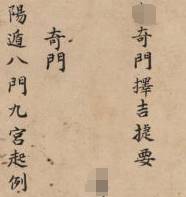 奇門擇吉捷要
奇門
陽遁八門九宮起例